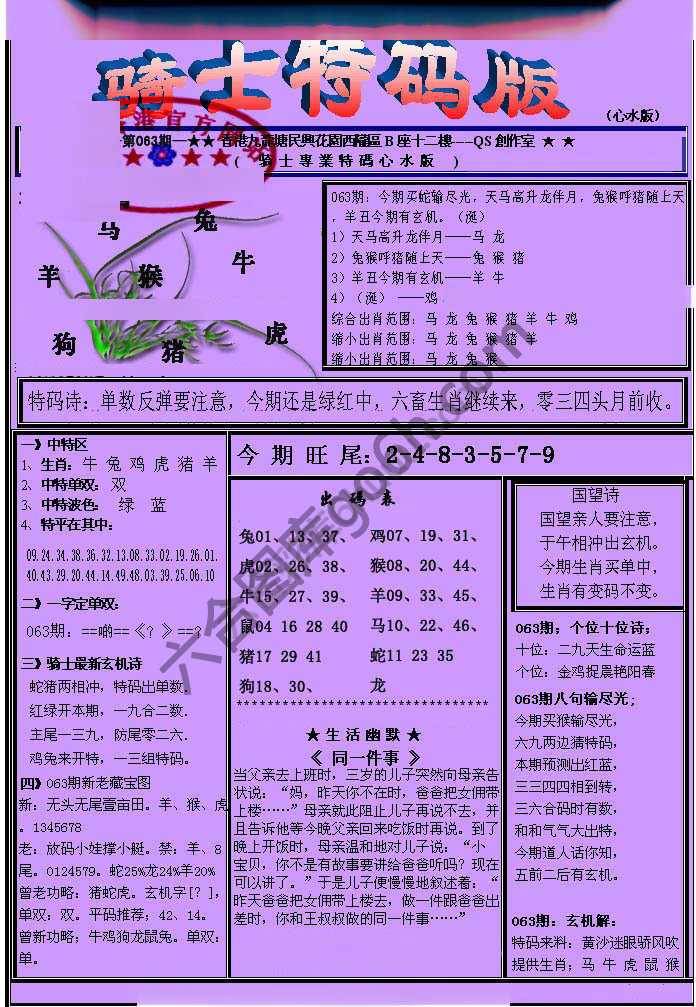 骑士特码版
（心水版）
第063期—★★ 香港九龍塘民興花園西福區 B 座十二樓----QS 創作室 ★ ★
( 騎 士 專 業 特 碼 心 水 版 )
港官方
马
兔
羊
猴
牛
狗
猪
虎
063期: 今期买蛇输尽光, 天马高升龙伴月, 兔猴呼猪随上天
, 羊丑今期有玄机。（涎）
1）天马高升龙伴月——马 龙
2）兔猴呼猪随上天——兔 猴 猪
3）羊丑今期有玄机——羊 牛
4）（涎） ——鸡
综合出肖范围: 马 龙 兔 猴 猪 羊 牛 鸡
缩小出肖范围: 马 龙 兔 猴 猪 羊
缩小出肖范围: 马 龙 兔 猴
特码诗: 单数反弹要注意, 今期还是绿红中, 六畜生肖继续来, 零三四头月前收。
一》中特区
1、生肖: 牛 兔 鸡 虎 猪 羊
2、中特单双: 双
3、中特波色: 绿 蓝
4、特平在其中:
09.24.34.38.36.32.13.08.33.02.19.26.01.
40.43.29.20.44.14.49.48.03.39.25.06.10
二》一字定单双:
063期: ==啲==《? 》==?
三》骑士最新玄机诗
蛇猪两相冲, 特码出单数.
红绿开本期, 一九合二数.
主尾一三九, 防尾零二六.
鸡兔来开特, 一三组特码。
四》063期新老藏宝图
新: 无头无尾壹亩田。羊、猴、虎
。1345678
老: 放码小娃撑小艇。禁: 羊、8
尾。0124579。蛇25%龙24%羊20%
曾老功略: 猪蛇虎。玄机字[?],
单双: 双。平码推荐; 42、14。
曾新功略; 牛鸡狗龙鼠兔。单双:
单。
今 期 旺 尾: 2-4-8-3-5-7-9
出 码 表
兔01、13、37、 鸡07、19、31、
虎02、26、38、 猴08、20、44、
牛15、27、39、 羊09、33、45、
鼠04 16 28 40 马10、22、46、
猪17 29 41 蛇11 23 35
狗18、30、 龙
**********************************
★ 生 活 幽 默 ★
《 同一件事 》
当父亲去上班时, 三岁的儿子突然向母亲告
状说: “妈, 昨天你不在时, 爸爸把女佣带
上楼……”母亲就此阻止儿子再说不去, 并
且告诉他等今晚父亲回来吃饭时再说。到了
晚上开饭时, 母亲温和地对儿子说: “小
宝贝, 你不是有故事要讲给爸爸听吗? 现在
可以讲了。”于是儿子便慢慢地叙述着: “
昨天爸爸把女佣带上楼去, 做一件跟爸爸出
差时, 你和王叔叔做的同一件事……”
国望诗
国望亲人要注意,
于午相冲出玄机。
今期生肖买单中,
生肖有变码不变。
063期; 个位十位诗;
十位: 二九天生命运蓝
个位: 金鸡捉晨艳阳春
063期八句输尽光;
今期买猴输尽光,
六九两边猜特码,
本期预测出红蓝,
三三四四相到转,
三六合码时有数,
和和气气大出特,
今期道人话你知,
五前二后有玄机。
063期: 玄机解:
特码来料: 黄沙迷眼骄风吹
提供生肖; 马 牛 虎 鼠 猴
六合图库go6h.com